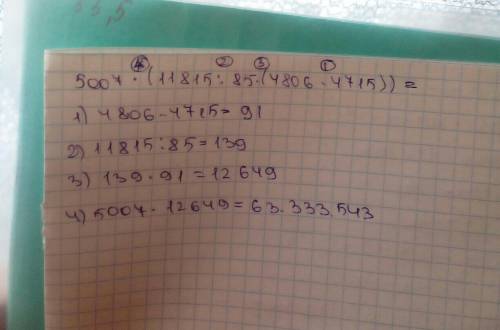 ④ ② ③ ①
5007 · (11815 : 85 · (4806 - 4715)) =
1) 4806 - 4715 = 91
2) 11815 : 85 = 139
3) 139 · 91 = 12649
4) 5007 · 12649 = 63.333.543